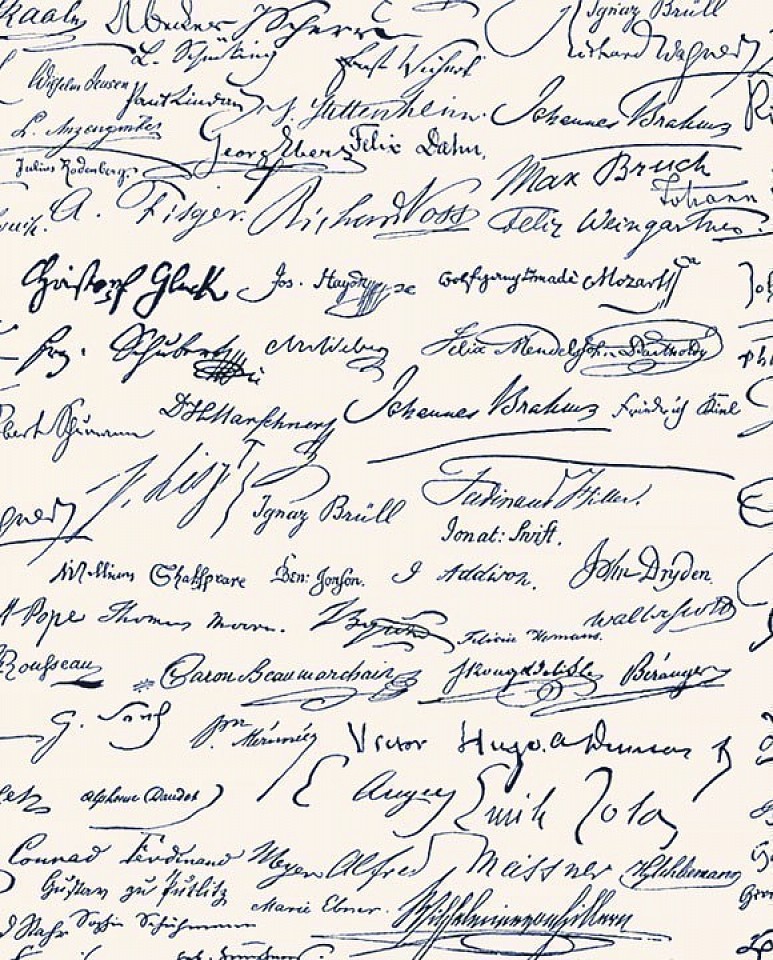 Ignaz Brüll
L. Schücking Ernst Wichert Richard Wagner
Wilhelm Jensen Paul Lindau J. Stettenheim Johannes Brahms
L. Anzengruber Georg Ebers Felix Dahn,
Julius Rodenberg. Max Bruch
Johann
A. Fitger. Richard Voss Felix Weingartner.
Christoph Gluck Jos. Haydn Wolfgang Amadè Mozart
Frz. Schubert CMvWeber Felix Mendelssohn Bartholdy
bert Schumann DHMarschner Johannes Brahms Friedrich Kiel
F. Liszt
gner Ignaz Brüll Ferdinand Hiller.
Jonat: Swift.
William Shakspeare Ben: Jonson. J Addison. John Dryden.
A Pope Thomas Moore. Byron Felicia Hemans. Walter Scott
Rousseau Caron Beaumarchais Rouget de Lisle Béranger
G. Sand Pr Mérimée Victor Hugo. A Dumas
Alphonse Daudet E Augier Emile Zola
Conrad Ferdinand Meyer Alfred Meissner
Gustav zu Putlitz Marie Ebner. Wilhelmine von Hillern
Sophie